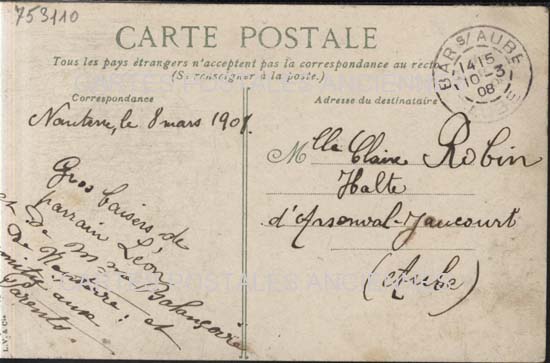 753110
CARTE POSTALE
Tous les pays étrangers n'acceptent pas la correspondance au recto
(Se renseigner à la poste.)
Correspondance
Adresse du destinataire
BAR S/AUBE
14 15
10 - 3
08
Nanterre, le 8 mars 1908.
Gros baisers de
parrain Léon
et de
De Nanterre ; et
aux
Parents.
Mlle Claire Robin
Halte
d'Arsonval-Jaucourt
(Aube)
CARTES POSTALES ANCIENNES
CARTES POSTALES ANCIENNES